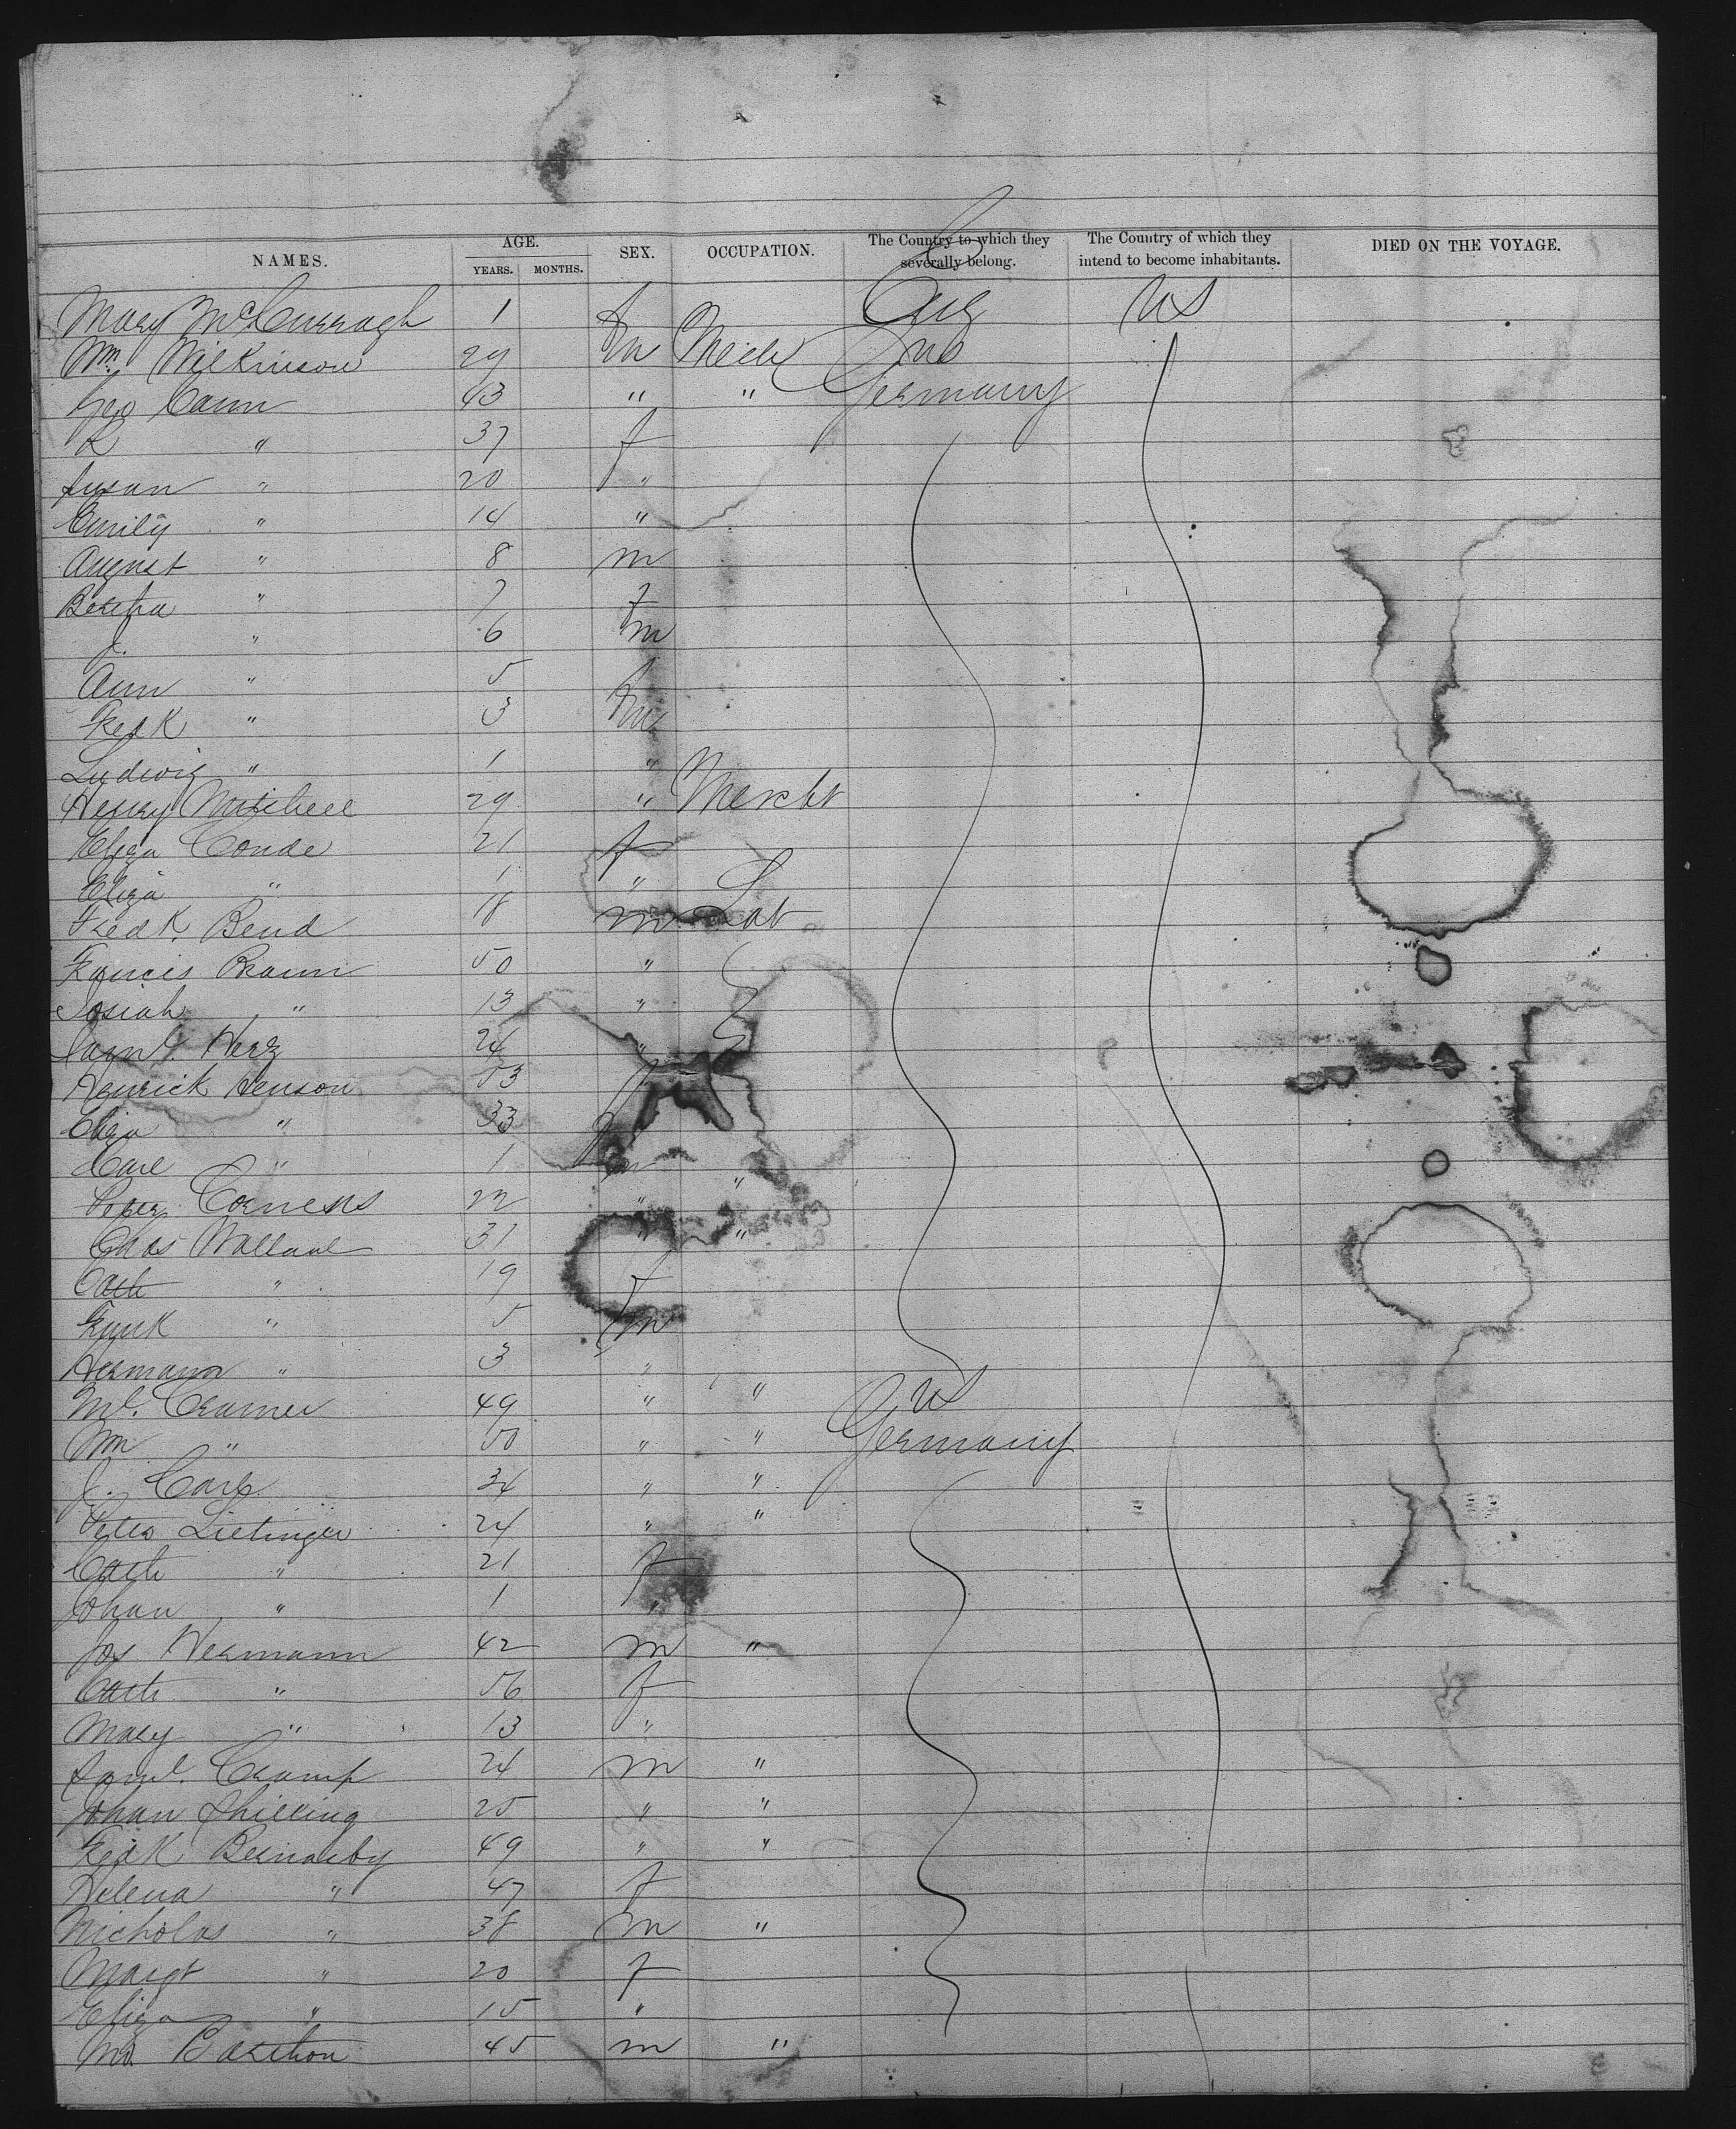 NAMES. AGE. YEARS. MONTHS. SEX. OCCUPATION. The Country to which they severally belong. The Country of which they intend to become inhabitants. DIED ON THE VOYAGE.
Mary McCurragh 1 f Eng US
Wm. Wilkinson 29 m Mech
Geo Cann 43 " " Germany
R " 37 f
Susan " 20 "
Emily " 14 "
August " 8 m
Bertha " 7 f
J. " 6 m
Ann " 5 f
Fredk " 3 m
Ludwig " 1 "
Henry Mitchell 29 " Mercht
Eliza Conde 21 f
Eliza " 1 "
Fredk. Bend 18 m Lab
Francis Braun 50 "
Josiah " 13 "
Saml. Herz 24 "
Henrick Henson 53
Eliza " 33 f
Carl " 1 m "
Peter 22 " "
Chas Wallaul 31 " "
Cath " 19 f
Frank " 5 m
Hermann " 3 "
Ml. Cramer 49 " " US
Wm " 50 " " Germany
J. Carl 34 " "
Peter Lietinger 24 " "
Cath " 21 f
Johan " 1 "
Jos Hermann 42 m "
Cath " 56 f
Mary " 13 "
Saml. Cramp 24 m "
Johan Shilling 25 " "
Fredk Bernarby 49 " "
Helena " 47 f
Nicholas " 38 m "
Margt " 20 f
Eliza " 15 "
Barthon 45 m "